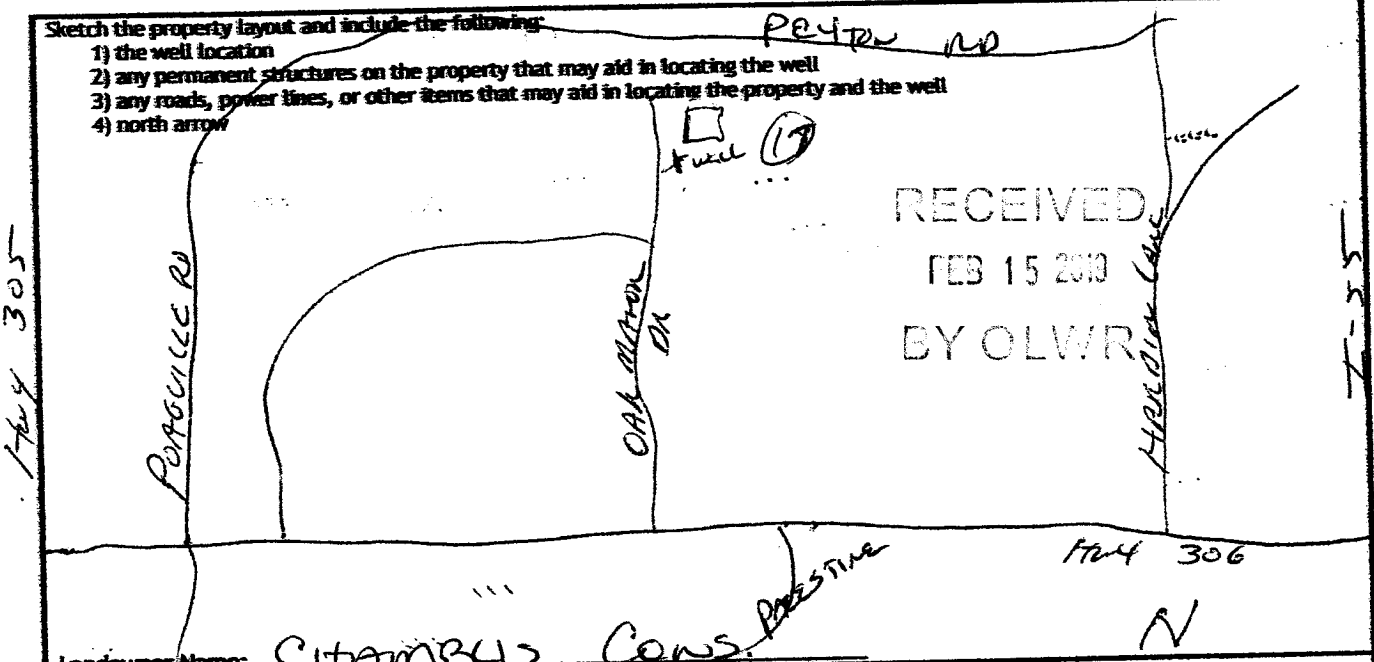 Sketch the property layout and include the following:
1) the well location
2) any permanent structures on the property that may aid in locating the well
3) any roads, power lines, or other items that may aid in locating the property and the well
4) north arrow
PEYTON RD
well 17
RECEIVED
FEB 15 2010
BY OLWR
Hwy 305
POAGVILLE RD
OAK MANOR DR
HARDING LANE
I-55
Hwy 306
PALESTINE
N
Landowner Name: CHAMBUS CONS.